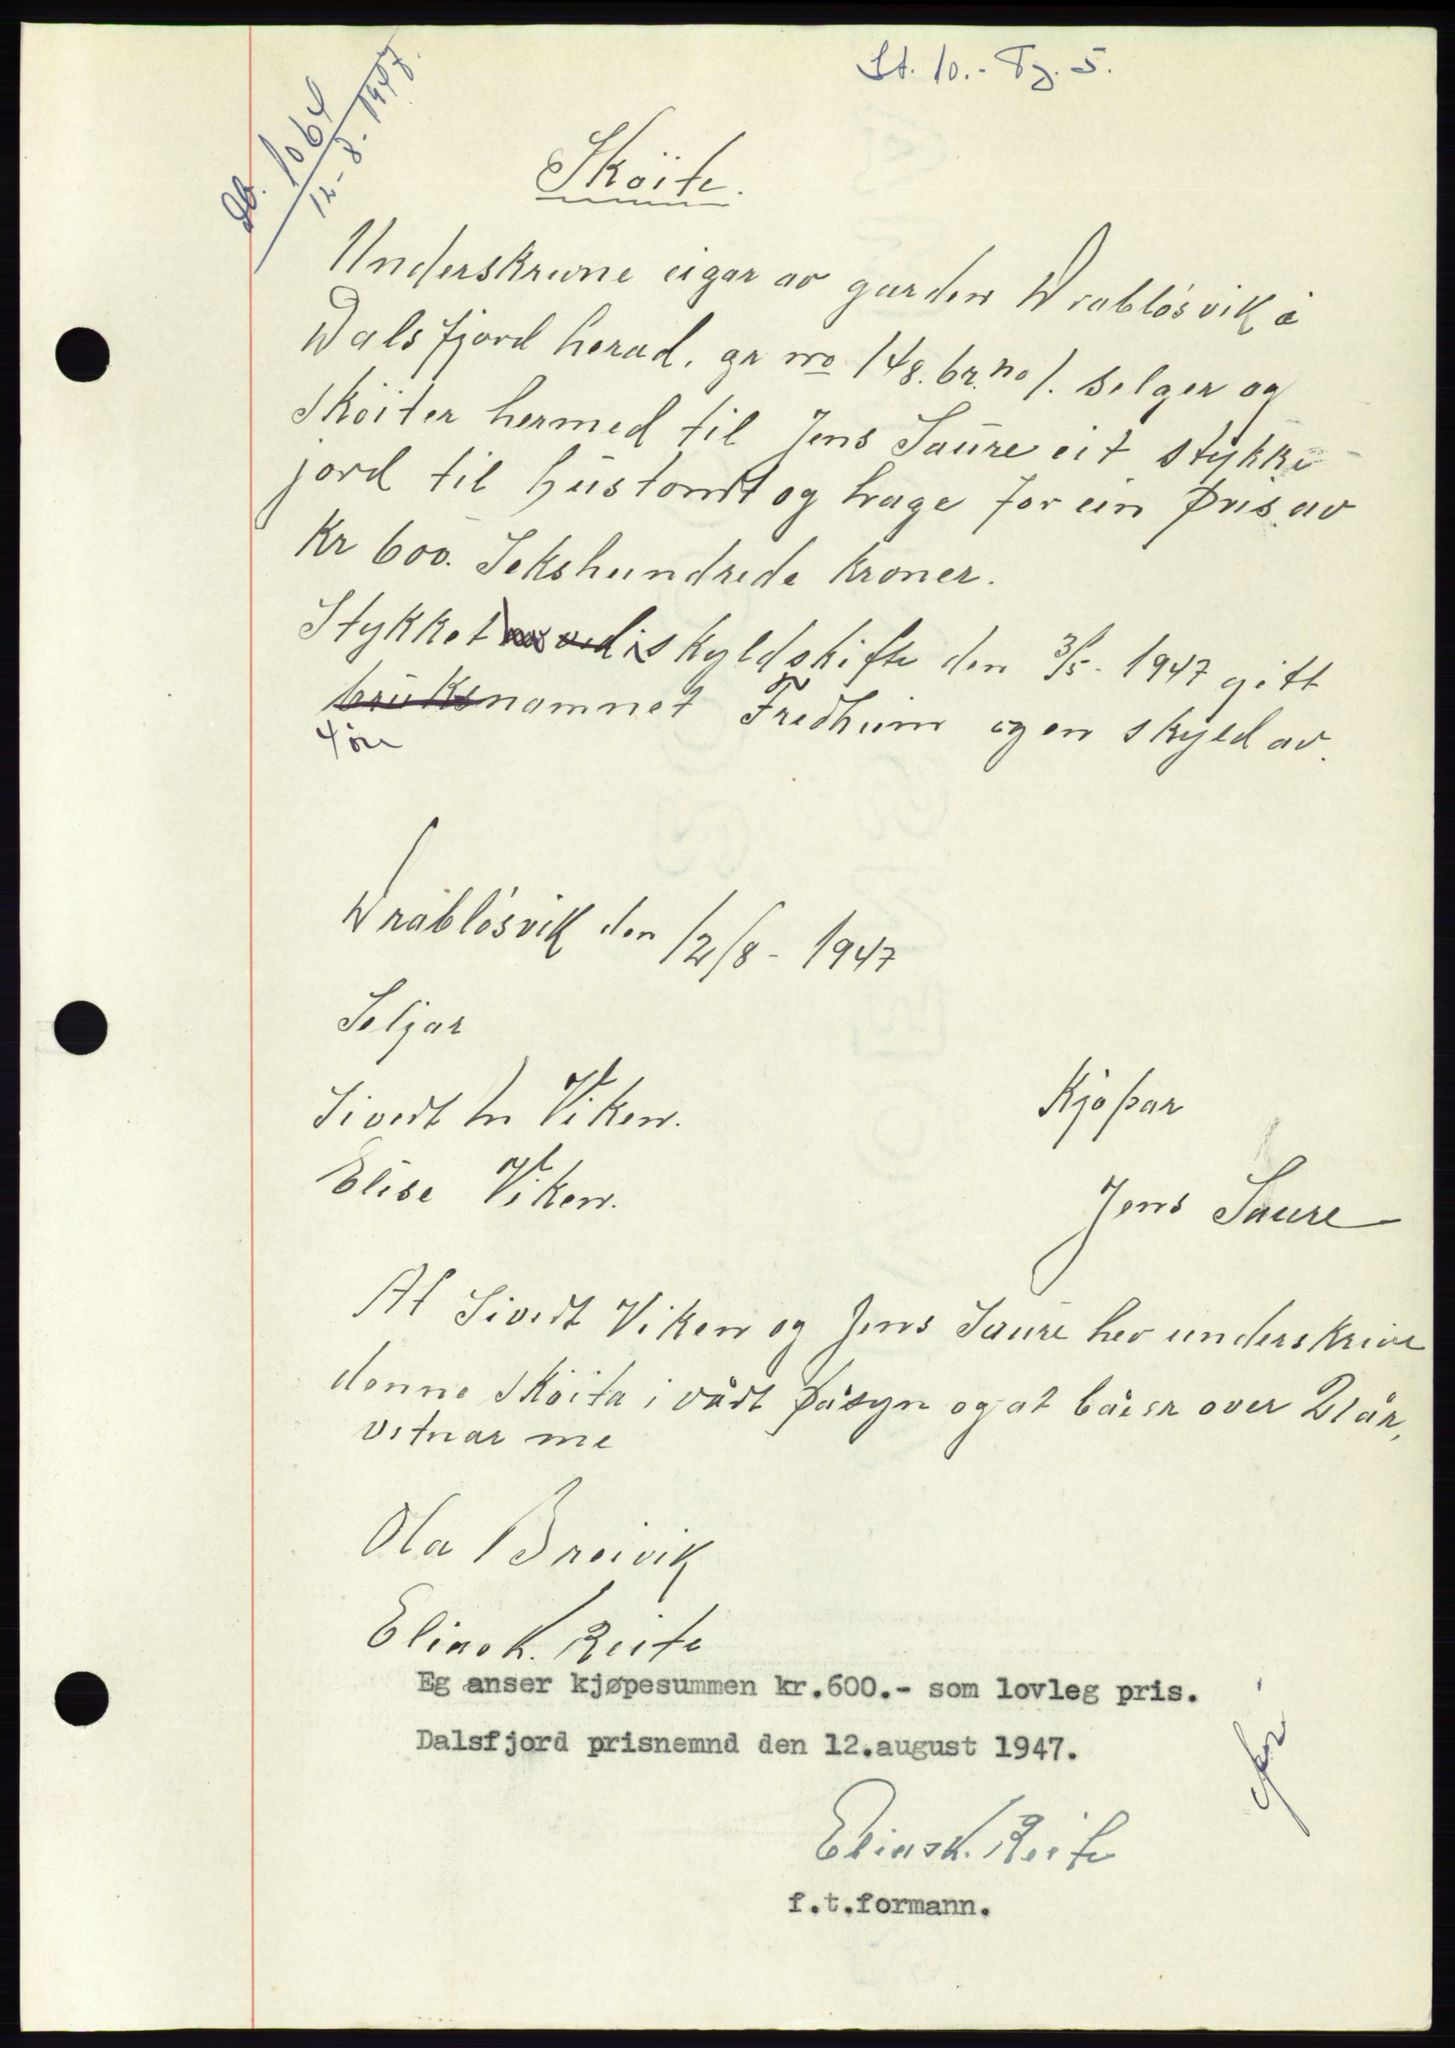 St. 10.- Tg. 5.
Db. 1064
12-8-1947.
Sköite.
Underskrivne eigar av garden Drabløsvik i
Dalsfjord herad. gr no 148. br. no 1. selger og
sköiter hermed til Jens Saure eit stykke
jord til hustomt og hage for ein pris av
Kr 600. Sekshundrede kroner.
Stykket ved i skyldskifte den 31/5- 1947 gitt
bruksnamnet Fredheim og en skyld av.
4 øre
Drabløsvik den 12/8 - 1947
Seljar
Kjøpar
Sivert M Viken.
Elise Viken.
Jens Saure
At Sivert Viken og Jens Saure hev underskrive
denne sköita i vårt påsyn og at båe er over 21 år,
vitnar me
Ola Breivik
Elias K. Reite
Eg anser kjøpesummen kr.600.- som lovleg pris.
Dalsfjord prisnemnd den 12.august 1947.
Elias K. Reite
f.t.formann.